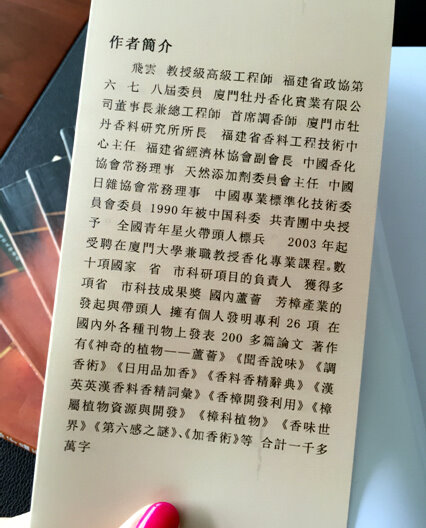 作者簡介
飛雲 教授級高級工程師 福建省政協第
六 七 八屆委員 廈門牡丹香化實業有限公
司董事長兼總工程師 首席調香師 廈門市牡
丹香料研究所所長 福建省香料工程技術中
心主任 福建省經濟林協會副會長 中國香化
協會常務理事 天然添加劑委員會主任 中國
日雜協會常務理事 中國專業標準化技術委
員會委員 1990年被中国科委 共青團中央授
予 全國青年星火帶頭人標兵 2003年起
受聘在廈門大學兼職教授香化專業課程。數
十項國家 省 市科研項目的負責人 獲得多
項省 市科技成果獎 國內蘆薈 芳樟產業的
發起與帶頭人 擁有個人發明專利26項 在
國內外各種刊物上發表 200 多篇論文 著作
有《神奇的植物——蘆薈》《聞香說味》《調
香術》《日用品加香》《香料香精辭典》《漢
英英漢香料香精詞彙》《香樟開發利用》《樟
屬植物資源與開發》《樟科植物》 《香味世
界》《第六感之謎》、《加香術》等 合計一千多
萬字